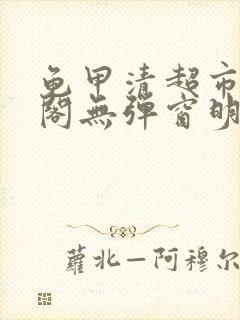 龟甲清超市
阁無弹窗明
蘿北—阿穆尔